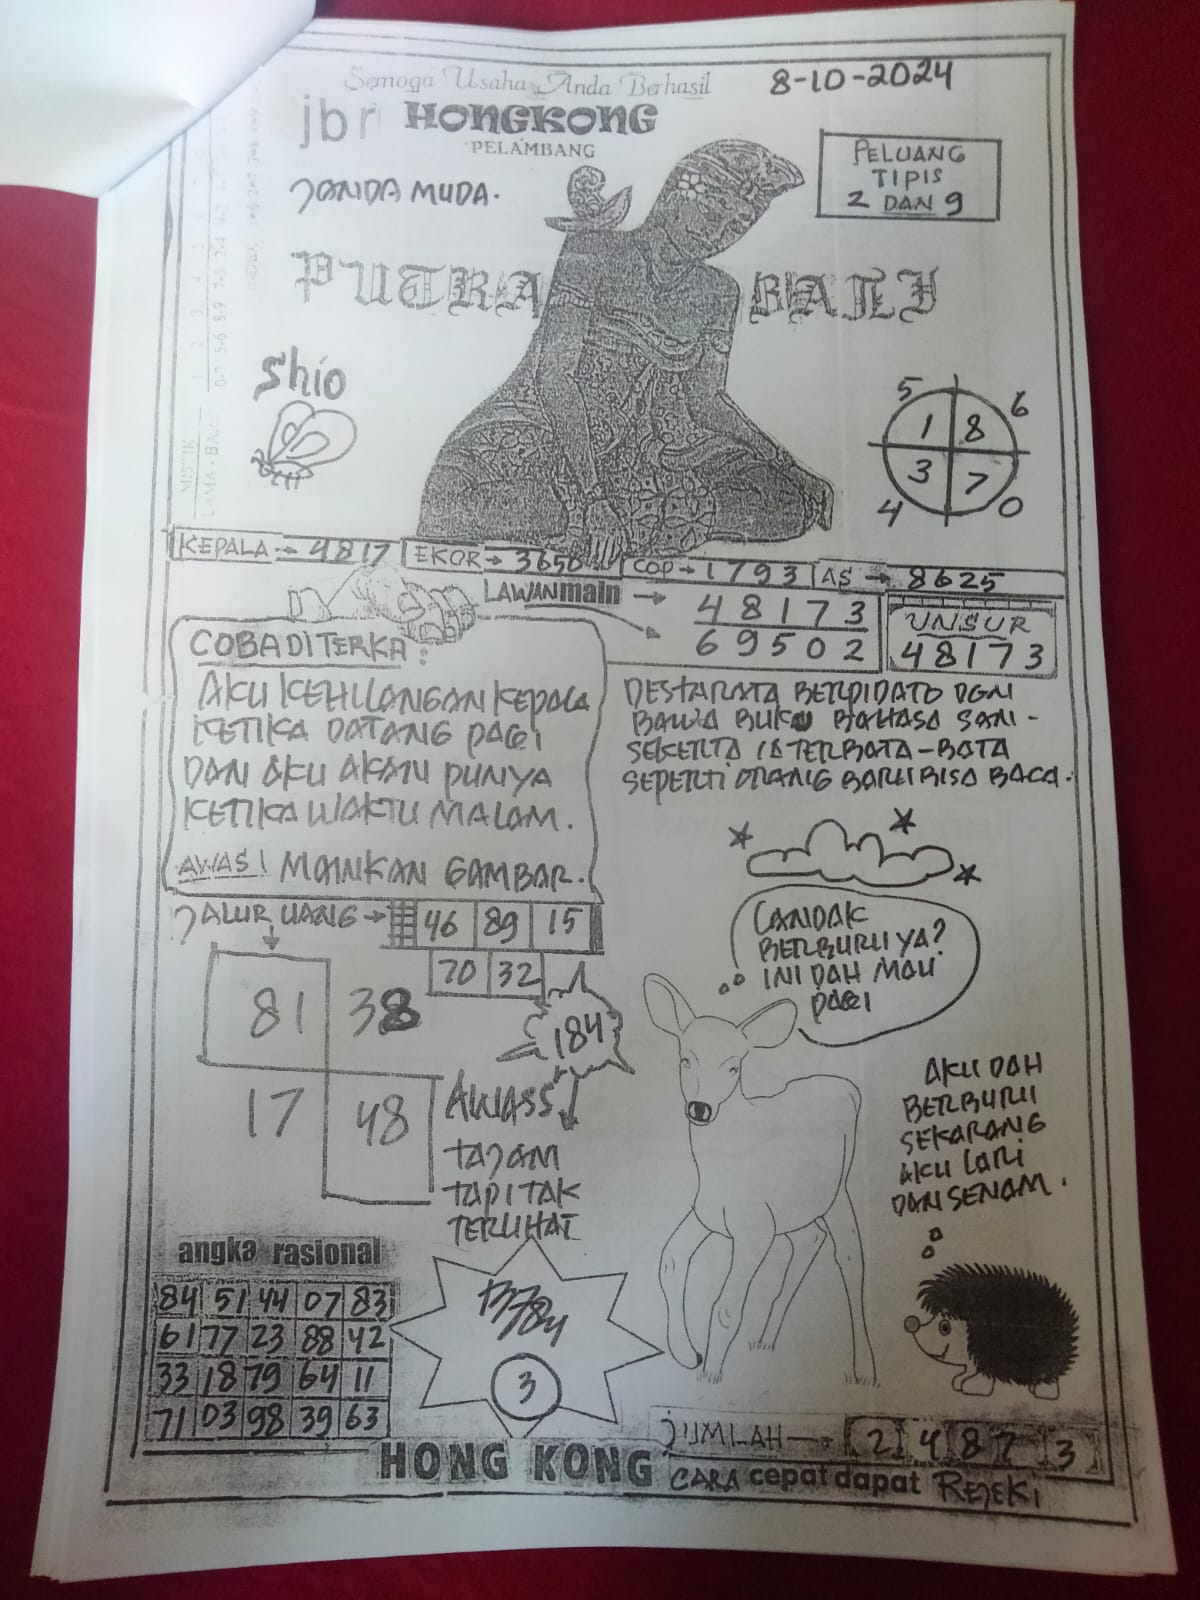 Semoga Usaha Anda Berhasil
8-10-2024
jbr HONGKONG
PELAMBANG
JANDA MUDA.
PELUANG
TIPIS
2 DAN 9
PUTRA BALI
Shio
5 6
1 8
3 7
4 0
MISTIK
LAMA - BARU
INDEX
KEPALA → 4817
EKOR → 3650
COP → 1793
AS → 8625
LAWAN main → 48173
69502
UNSUR
48173
COBA DITERKA :
AKU KEHILANGAN KEPALA
KETIKA DATANG PAGI
DAN AKU AKAN PUNYA
KETIKA WAKTU MALAM.
AWAS! MAINKAN GAMBAR.
DESTARATA BERPIDATO DGN
BAWA BUKU BAHASA SAN-
SEKERTA IA TERBATA-BATA
SEPERTI ORANG BARU BISA BACA.
JALUR UANG → 46 89 15
70 32
81 38
17 48
184
AWASS
TAJAM
TAPI TAK
TERLIHAT
LANDAK
BERBURU YA?
INI DAH MAU
PAGI
AKU DAH
BERBURU
SEKARANG
AKU LARI
DAN SENAM.
angka rasional
84 51 44 07 83
61 77 23 88 42
33 18 79 64 11
71 03 98 39 63
3
JUMLAH → 2 4 8 7 3
HONG KONG
CARA cepat dapat REJEKI